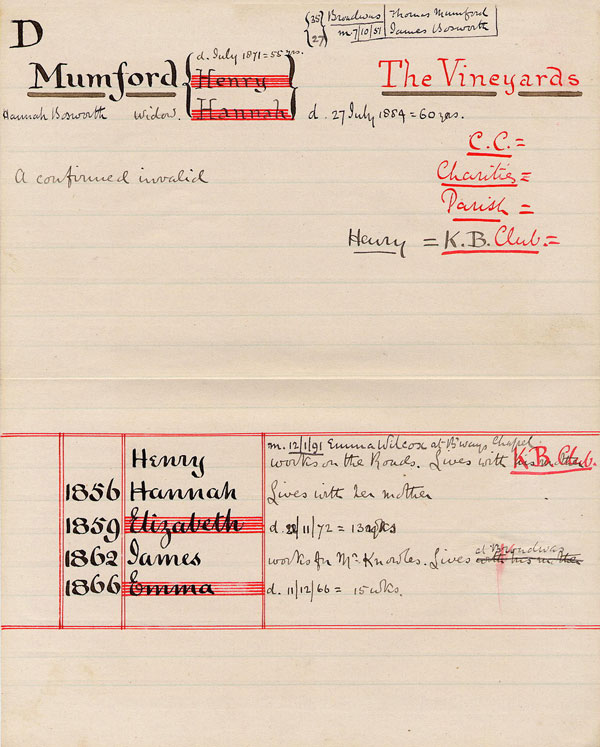 D
{35} Broadwas | Thomas Mumford
{27} m 7/10/51 | James Bosworth
{d. July 1871 = 55 yrs.}
Mumford {Henry} The Vineyards
Hannah Bosworth Widow. {Hannah} d. 27 July 1884 = 60 yrs.
C.C. =
A confirmed invalid
Charities =
Parish =
Henry = K.B. Club. =
m. 12/1/91 Emma Wilcox at B'ways Chapel
Henry works on the Roads. Lives with his mother K.B. Club.
1856 Hannah Lives with her mother
1859 Elizabeth d. 22/11/72 = 13
at Broadwas
1862 James works for Mr. Knowles. Lives with his mother
1866 Emma d. 11/12/66 = 15 wks.